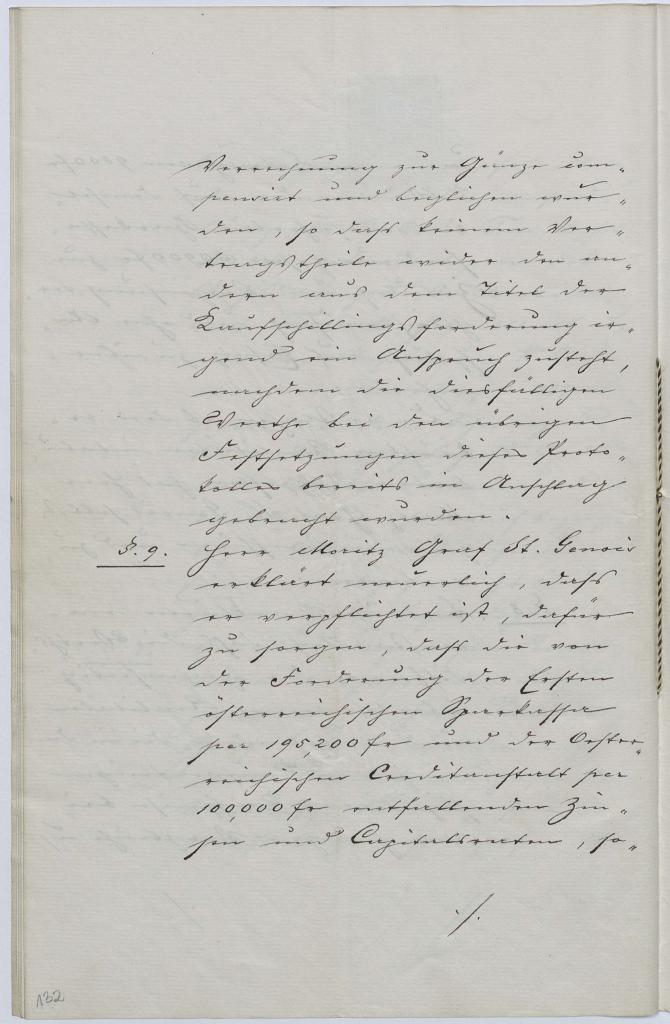 Verrechnung zur Gänze com„
pensirt und beglichen wur„
den, so daß keinem Ver„
tragstheile wider den an„
dern aus dem Titel der
Kaufschillingsforderung ir„
gend ein Anspruch zusteht,
nachdem die diesfälligen
Werthe bei den übrigen
Festsetzungen dieses Proto„
kolles bereits in Anschlag
gebracht wurden.
§. 9. Herr Moritz Graf St. Genois
erklärt neuerlich, daß
er verpflichtet ist, dafür
zu sorgen, daß die von
der Forderung der Ersten
österreichischen Sparkassa
per 195,200 fr und der Oester„
reichischen Creditanstalt per
100,000 fr entfallenden Zin„
sen und Capitalsraten, so„
./.
132